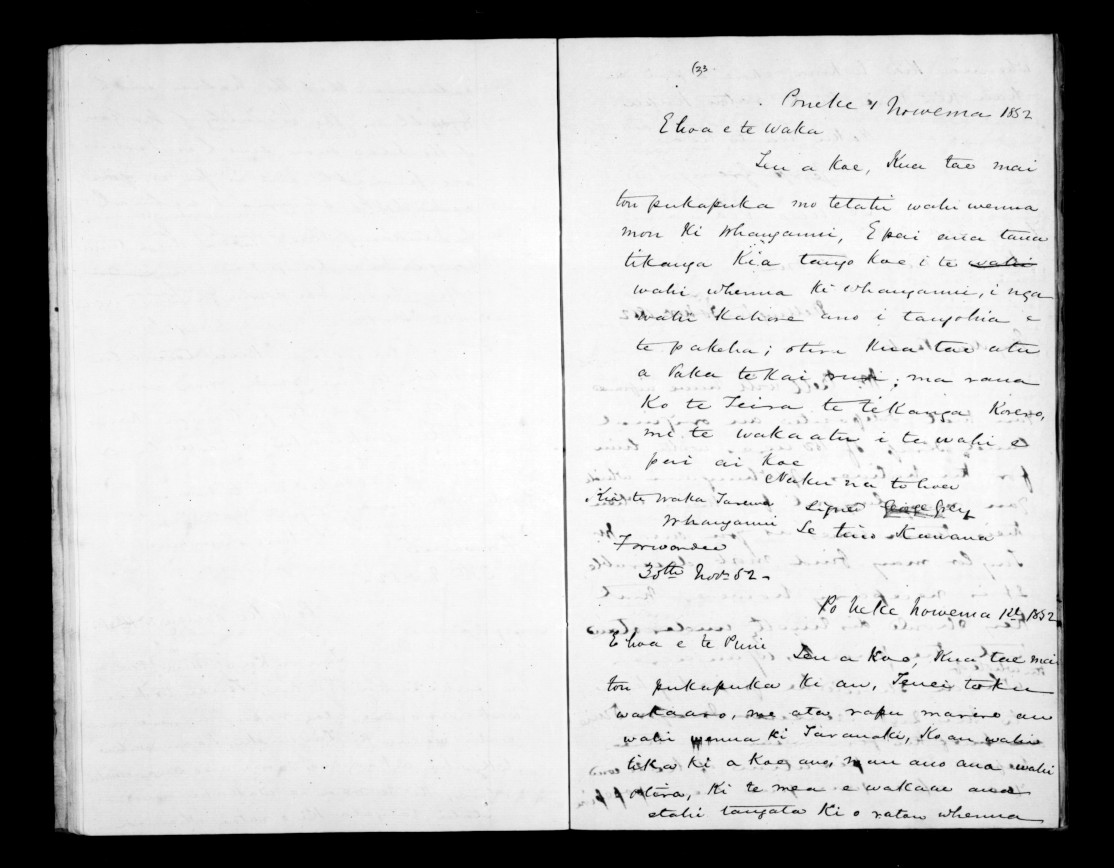 (33
Poneke Nowema 1852
E hoa e te Waka
Tena koe, Kua tae mai
tou pukapuka mo tetahi wahi wenua
mou ki Whanganui, E pai ana taua
tikanga Kia tango koe i te wahi
wahi whenua ki Whanganui, i nga
wahi Kahore ano i tangohia e
te pakeha; otira Kua tae atu
a Paka te Kai ruri; ma raua
Ko te Teira te tikanga Korero,
me te wakaatu i te wahi e
pai ai koe
Naku na to hoa
Kia te Waka Tarewa Signed George Grey
Whanganui Te tino Kawana
Forwarded
30th Novr 52 -
Po Neke Nowema 1st 1852
E hoa e te Puni
Tena Koe, Kua tae mai
tou pukapuka ki au, Tenei toku
wakaaro, me ata rapu marire au
wahi wenua ki Taranaki, Ko au wahi
tika ki a Koe ano, nau ano ana wahi
otira, Ki te mea e wakaae ana
etahi tangata Ki o ratou whenua